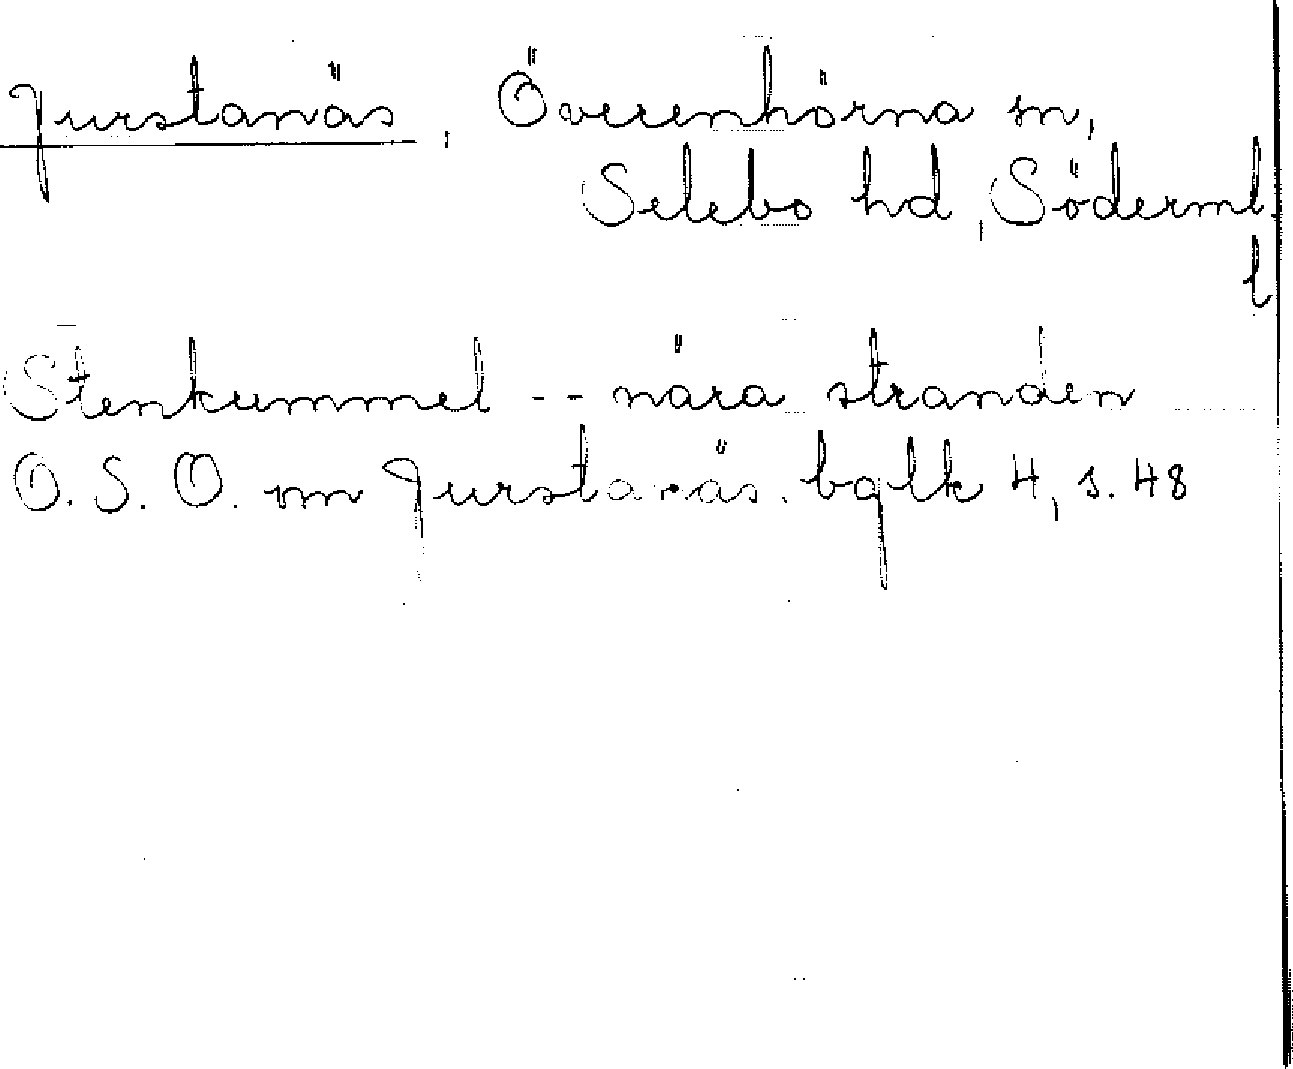 Jurstanäs, Överenhörna sn,
Selebo hd, Söderml.
l
Stenkummel -- nära stranden
O.S.O. om Jurstanäs. bqlk 4, s. 48